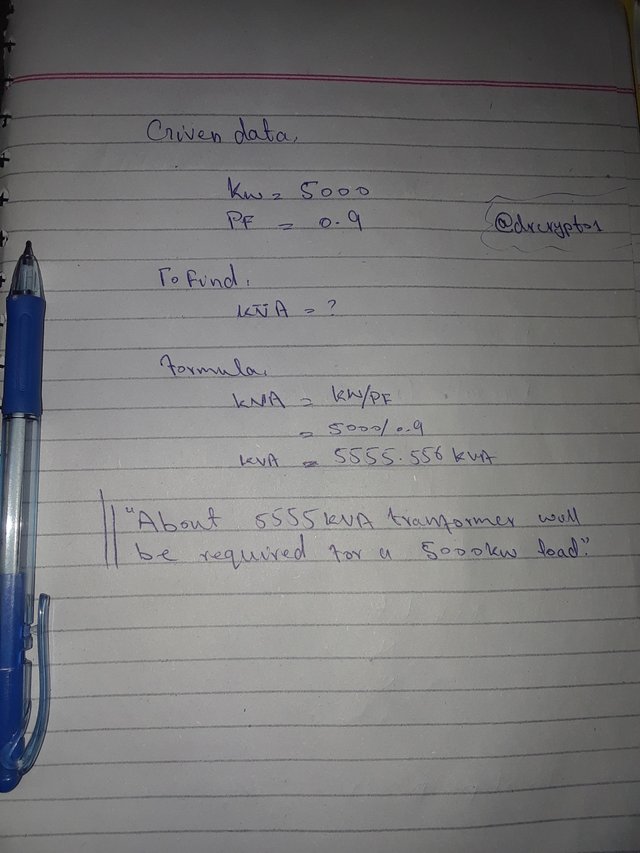 Given data,
Kw = 5000
PF = 0.9
@drcrypto1
To Find,
KVA = ?
Formula,
KVA = KW/PF
= 5000/0.9
KVA = 5555.556 KVA
"About 5555 KVA tranformer will
be required for a 5000kw load"